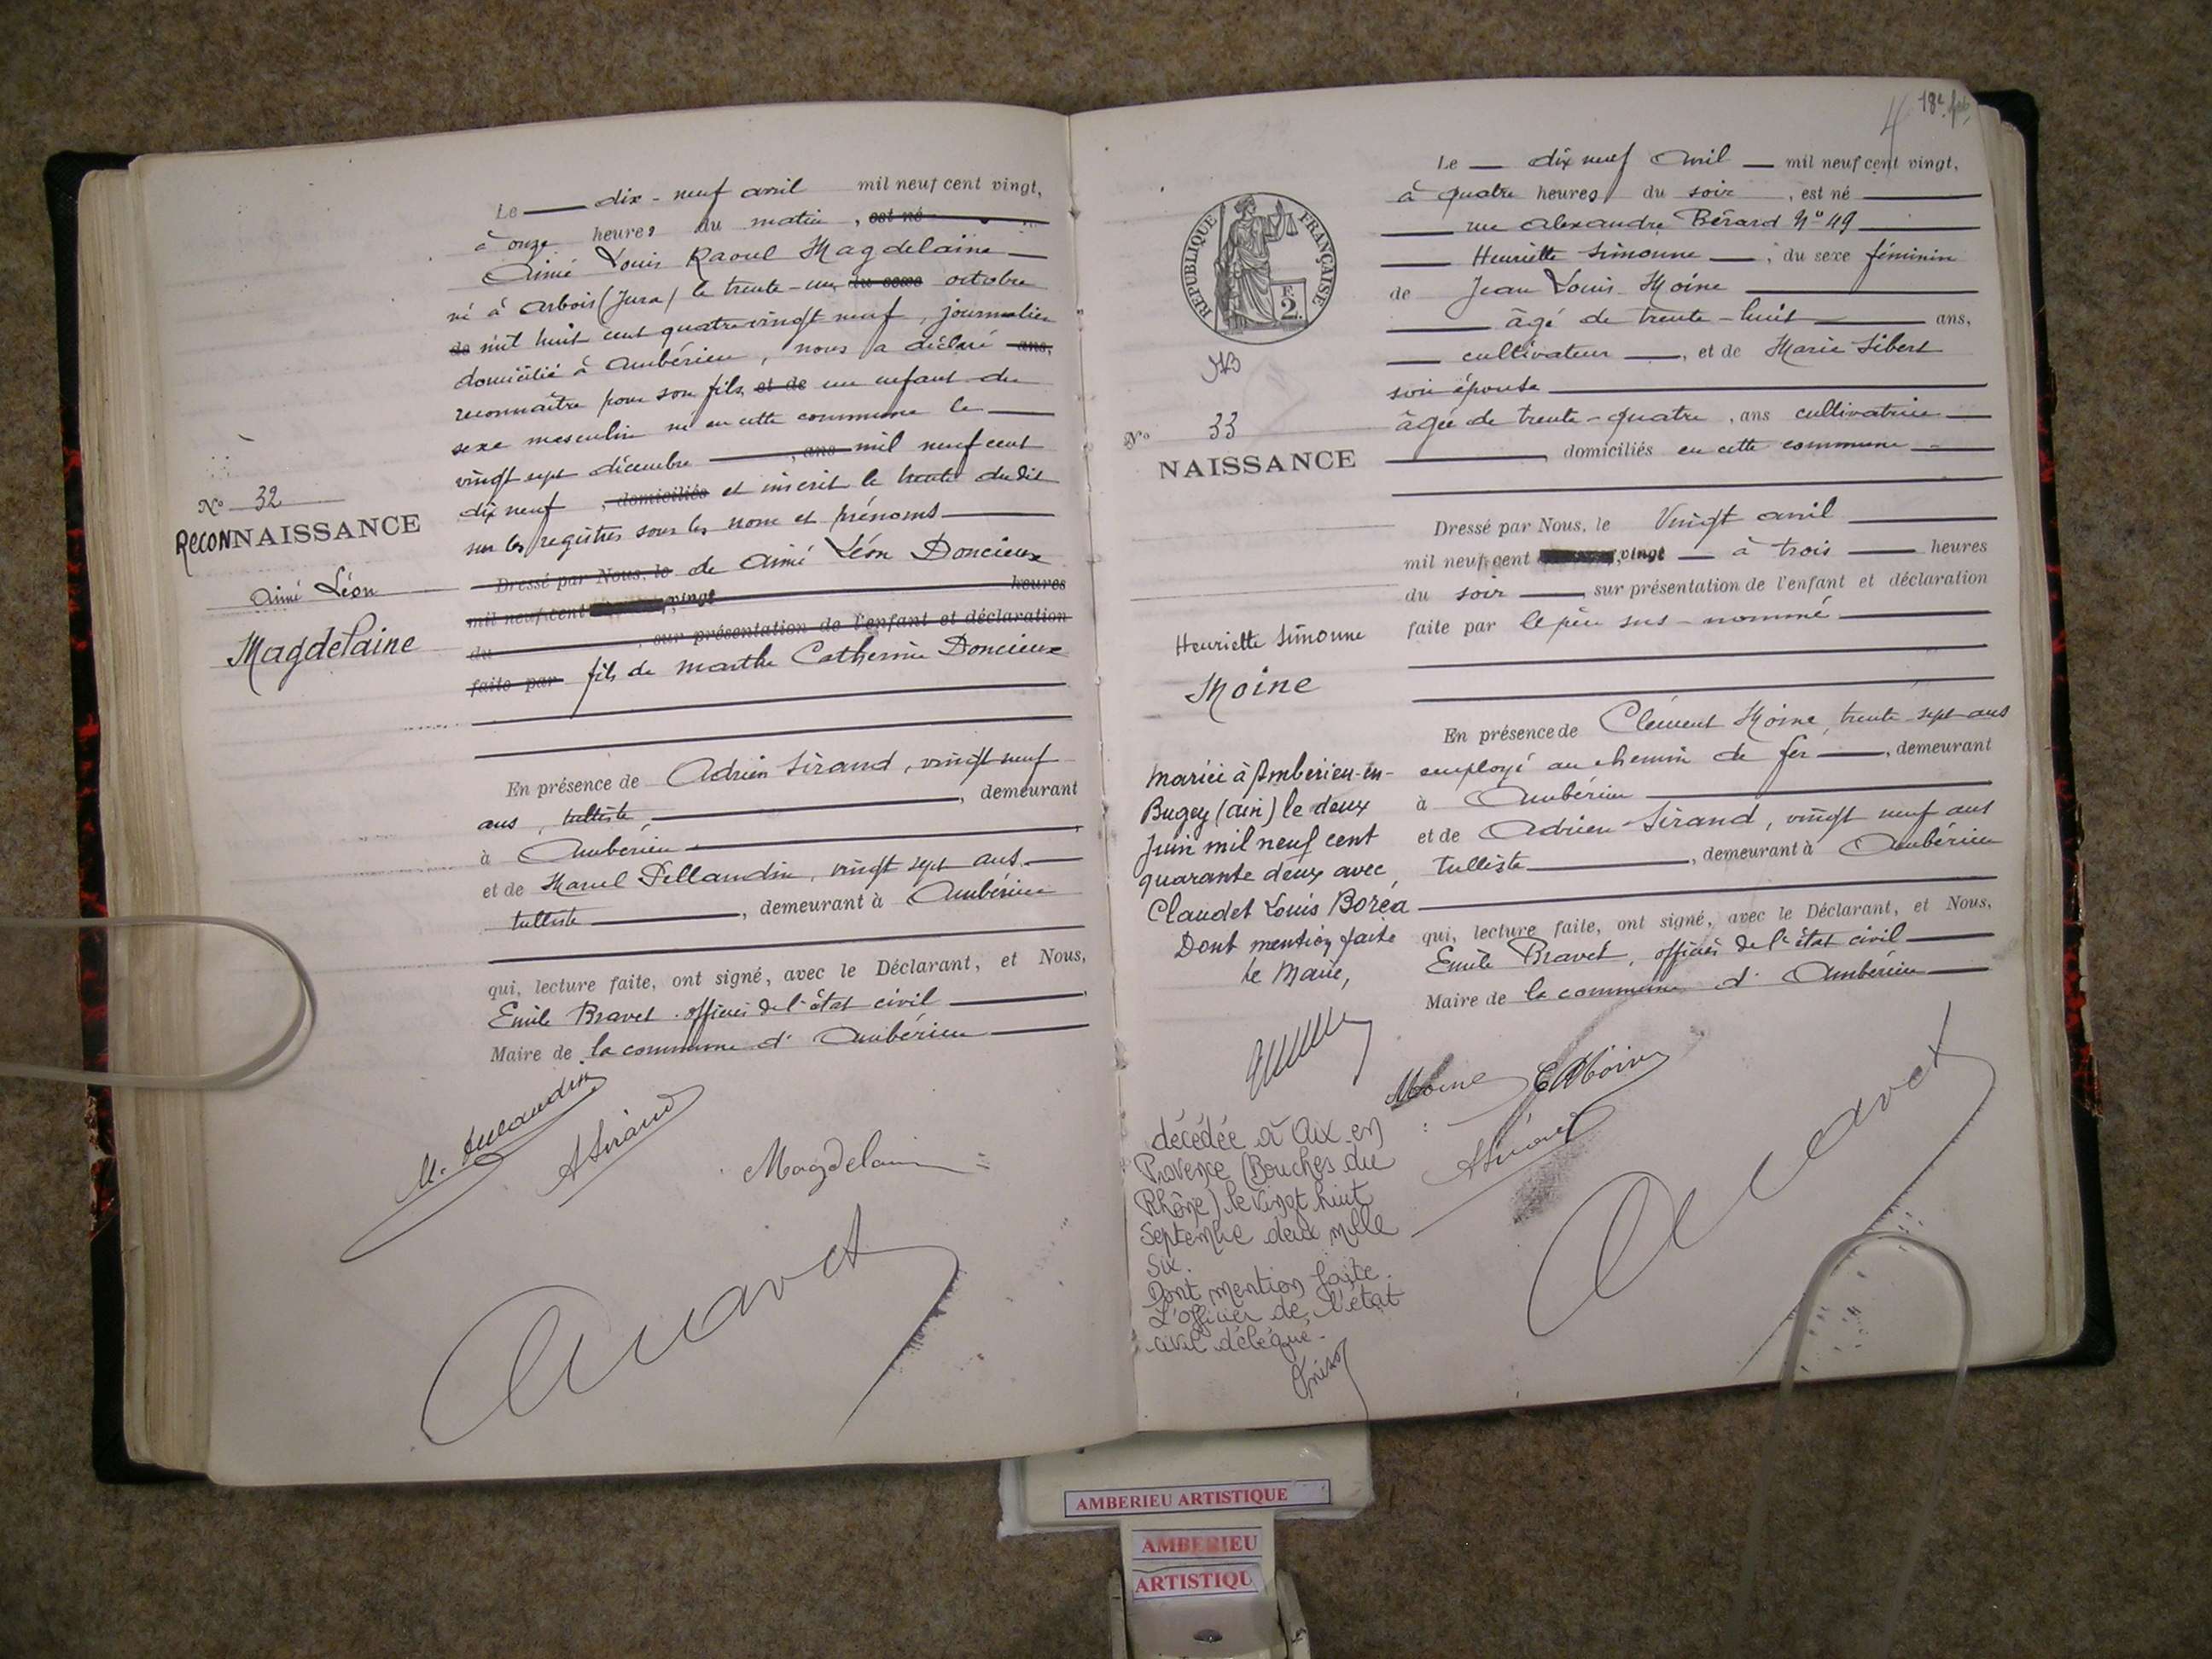 Le dix-neuf avril mil neuf cent vingt,
à onze heures du matin, est né
Aimé Louis Raoul Magdelaine
né à Arbois (Jura) le trente-un du sexe octobre
de mil huit cent quatre vingt neuf, journalier
domicilié à Ambérieu, nous a déclaré ans,
reconnaître pour son fils, et de un enfant du
sexe masculin né en cette commune le
vingt sept décembre, ans mil neuf cent
dix neuf, domiciliés et inscrit le trente dudit
sur les registres sous les nom et prénoms
Dressé par Nous, le de Aimé Léon Doncieux
mil neuf cent vingt heures
du, sur présentation de l'enfant et déclaration
faite par fils de Marthe Catherine Doncieux
En présence de Adrien Sirand, vingt neuf
ans, tulliste, demeurant
à Ambérieu
et de Marcel Pellaudin, vingt sept ans
tulliste, demeurant à Ambérieu
qui, lecture faite, ont signé, avec le Déclarant, et Nous,
Emile Bravet officier de l'état civil
Maire de la commune d'Ambérieu
N° 32
RECONNAISSANCE
Aimé Léon
Magdelaine
ASirand
Magdelaine
18e
4
Le dix neuf Avril mil neuf cent vingt,
à quatre heures du soir, est né
rue Alexandre Bérard N° 49
Henriette Simonne, du sexe féminin
de Jean Louis Moine
âgé de trente-huit ans,
cultivateur, et de Marie Sibert
son épouse
âgée de trente-quatre, ans cultivatrice
, domiciliés en cette commune
Dressé par Nous, le Vingt avril
mil neuf cent vingt à trois heures
du soir, sur présentation de l'enfant et déclaration
faite par le père sus-nommé
En présence de Clément Moine, trente sept ans
employé au chemin de fer, demeurant
à Ambérieu
et de Adrien Sirand, vingt neuf ans
tulliste, demeurant à Ambérieu
qui, lecture faite, ont signé, avec le Déclarant, et Nous,
Emile Bravet, officier de l'état civil
Maire de la commune d'Ambérieu
REPUBLIQUE FRANÇAISE
2
N° 33
NAISSANCE
Henriette Simonne
Moine
Mariée à Ambérieu-en-
Bugey (Ain) le deux
Juin mil neuf cent
quarante deux avec
Claudet Louis Boréa
Dont mention faite
le Maire,
Moine
décédée à Aix en
Provence (Bouches du
Rhône) le vingt huit
Septembre deux mille
Six.
Dont mention faite.
L'officier de l'état
civil délégué.
AMBERIEU ARTISTIQUE
AMBERIEU
ARTISTIQU